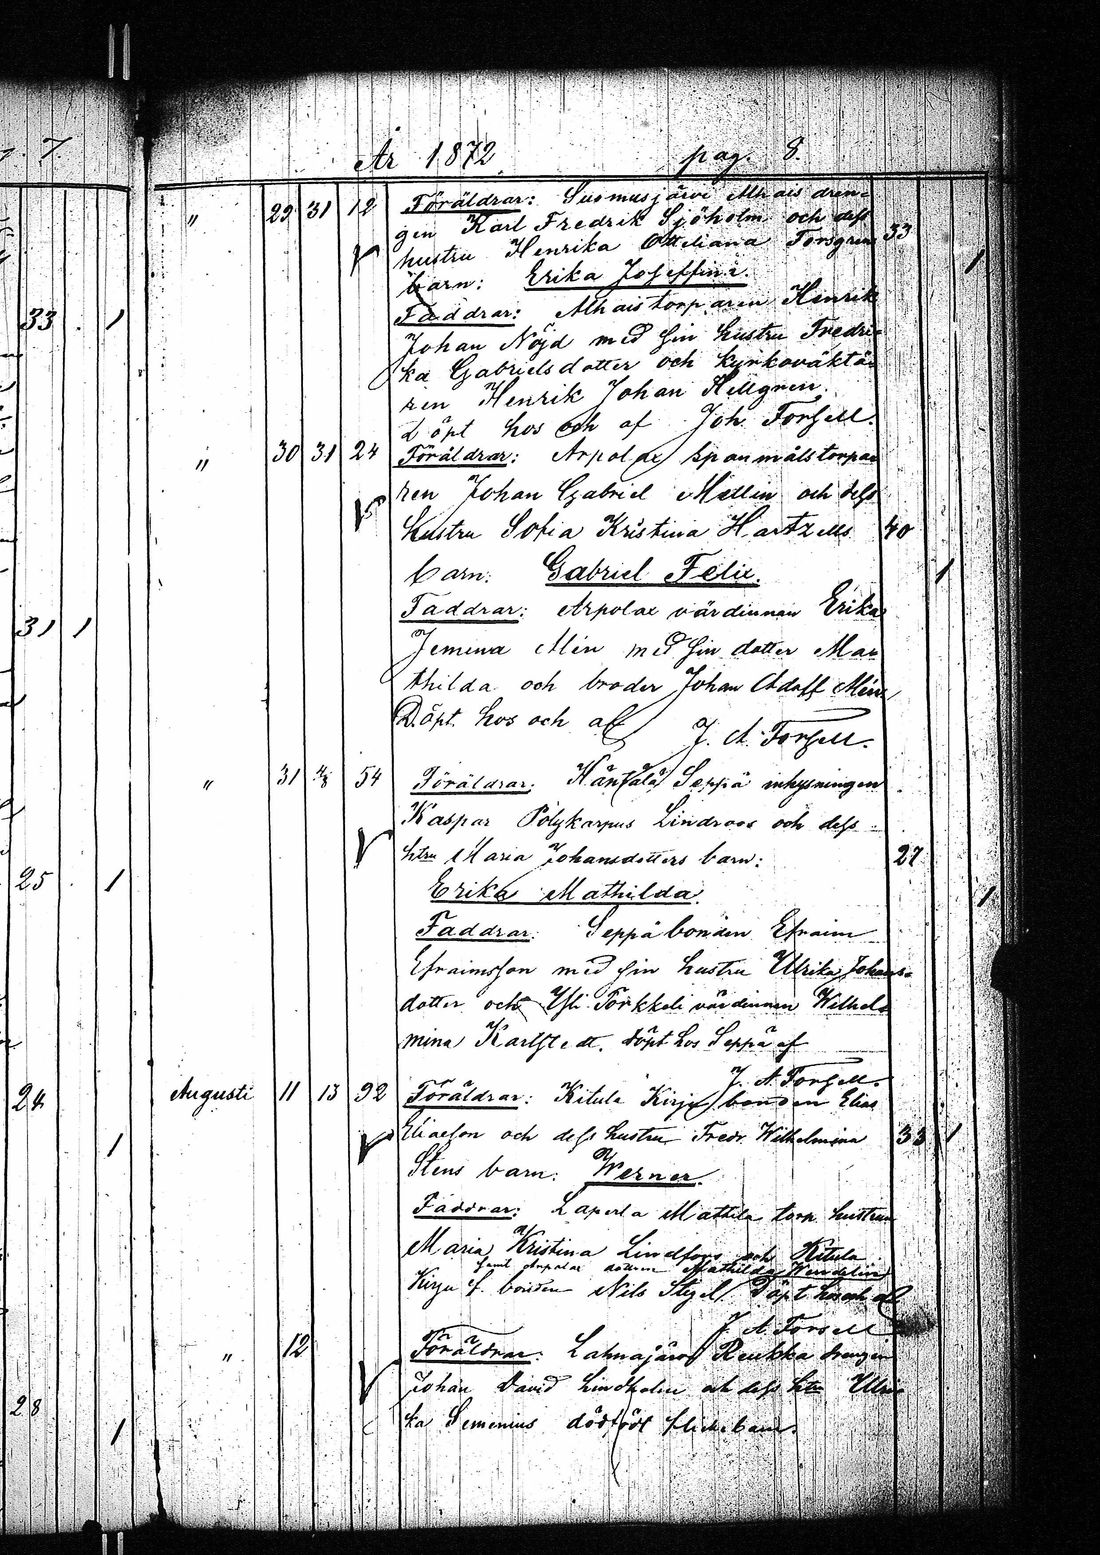 År 1872. pag. 8.
" 29 31 12 Föräldrar: Suomusjärvi Alhais drän-
gen Karl Fredrik Sjöholm och dess
hustru Henrika Ottiliana Forsgrens 33
barn: Erika Joseffina. 1
Faddrar: Alhaistorparen Henrik
Johan Nöjd med sin hustru Fredri-
ka Gabrielsdotter och kyrkoväkta-
ren Henrik Johan Hellgren.
Döpt hos och af Joh. Forsell.
" 30 31 24 Föräldrar: Arpolax spanmålstorpa-
ren Johan Gabriel Mellin och dess
hustru Sofia Kristina Hartzells 40
barn: Gabriel Felix. 1
Faddrar: Arpolax värdinnan Erika
Jemina Mén med sin dotter Ma-
thilda och broder Johan Adolf Mén
Döpt hos och af
J. A. Forsell.
" 31 4/8 54 Föräldrar: Seppä inhysningen
Kaspar Polykarpus Lindroos och dess
htru Maria Johansdotters barn: 27
Erika Mathilda. 1
Faddrar: Seppä bonden Efraim
Efraimsson med sin hustru Ulrika Johans-
dotter och Torkkeli värdinnan Wilhel-
mina Karlstedt. döpt hos Seppä af
J. A. Forsell.
Augusti 11 13 92 Föräldrar: Kitula Kirju bonden Elias
Eliasson och dess hustru Fredr. Wilhelmina 33 1
Stens barn: Werner.
Faddrar: Laperla Mattila torp. hustrun
Maria Kristina Lindfors och Kitula
samt Arpolax Mathilda Wendelin
Kirju f. bonden Nils Döpt hos och af
J. A. Forsell
" 12 Föräldrar: Lahnajärvi Reukka drengen
Johan David Lindholm och dess htru Ulri-
ka Semenius dödfödt flickebarn.
7.
33 1
31 1
25 1
24
1
28
1